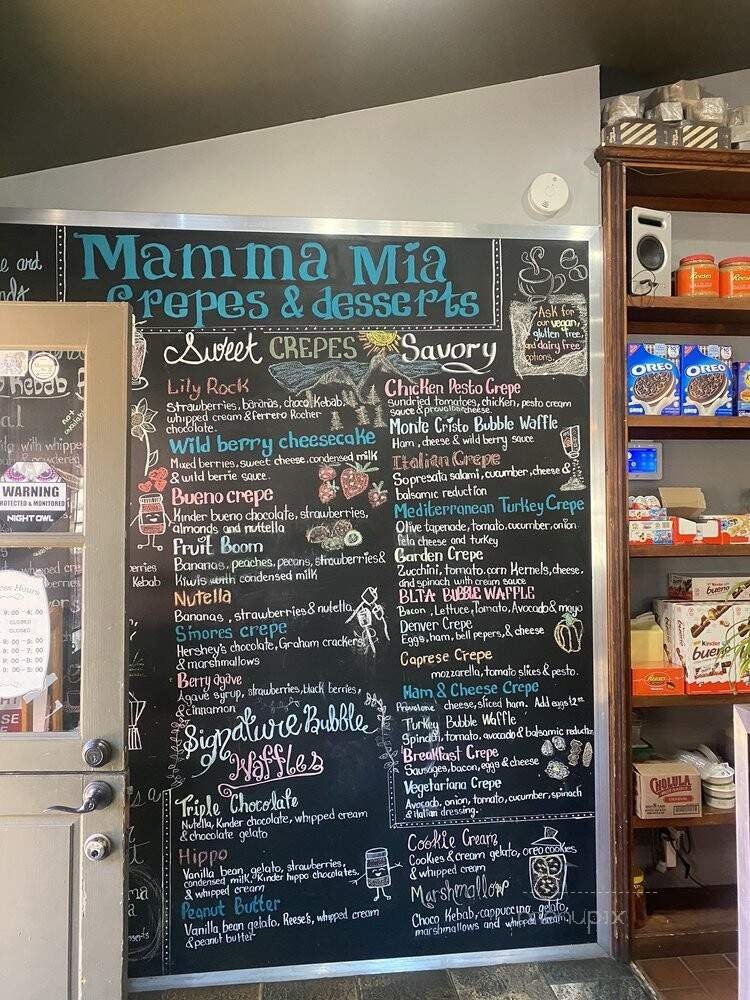 Mamma Mia
Crepes & desserts
Ask for
our vegan,
glutten free,
and dairy free
options.
Sweet CREPES Savory
Lily Rock
Strawberries, bananas, choco kebab,
whipped cream & ferrero Rocher
chocolate.
Wild berry cheesecake
Mixed berries, sweet cheese, condensed milk
& wild berrie sauce.
Bueno crepe
Kinder bueno chocolate, strawberries,
almonds and nuttella
Fruit Boom
Bananas, peaches, pecans, strawberries &
Kiwis with condensed milk
Nutella
Bananas, strawberries & nutella
S'mores crepe
Hershey's chocolate, Graham crackers
& marshmallows
Berry agave
Agave syrup, strawberries, black berries,
& cinnamon
Signature Bubble
Waffles
Triple Chocolate
Nutella, Kinder chocolate, whipped cream
& chocolate gelato
Hippo
Vanilla bean gelato, strawberries,
condensed milk, Kinder hippo chocolates,
& whipped cream
Peanut Butter
Vanilla bean gelato, Reese's, whipped cream
& peanut butter
Chicken Pesto Crepe
Sundried tomatoes, chicken, pesto cream
sauce & provolone cheese.
Monte Cristo Bubble Waffle
Ham, cheese & wild berry sauce
Italian Crepe
Sopresata salami, cucumber, cheese &
balsamic reduction
Mediterranean Turkey Crepe
Olive tapenade, tomato, cucumber, onion
feta cheese and turkey
Garden Crepe
Zucchini, tomato, corn Kernels, cheese,
and spinach with cream sauce
BLTA BUBBLE WAFFLE
Bacon, Lettuce, Tomato, Avocado & mayo
Denver Crepe
Eggs, ham, bell pepers, & cheese
Caprese Crepe
mozzarella, tomato slices & pesto.
Ham & Cheese Crepe
Provolone cheese, sliced ham. Add eggs
Turkey Bubble Waffle
Spinach, tomato, avocado & balsamic reduction
Breakfast Crepe
Sausages, bacon, eggs & cheese
Vegetariana Crepe
Avocado, onion, tomato, cucumber, spinach
& italian dressing.
Cookie Cream
Cookies & cream gelato, oreo cookies
& whipped cream
Marshmallow
Choco Kebab, cappuccino gelato,
marshmallows and whipped cream
WARNING
PROTECTED & MONITORED
NIGHT OWL
CLOSED
CLOSED
Kebab
Reese's
Reese's
OREO
OREO
Kinder
bueno
CHOLULA
menupix